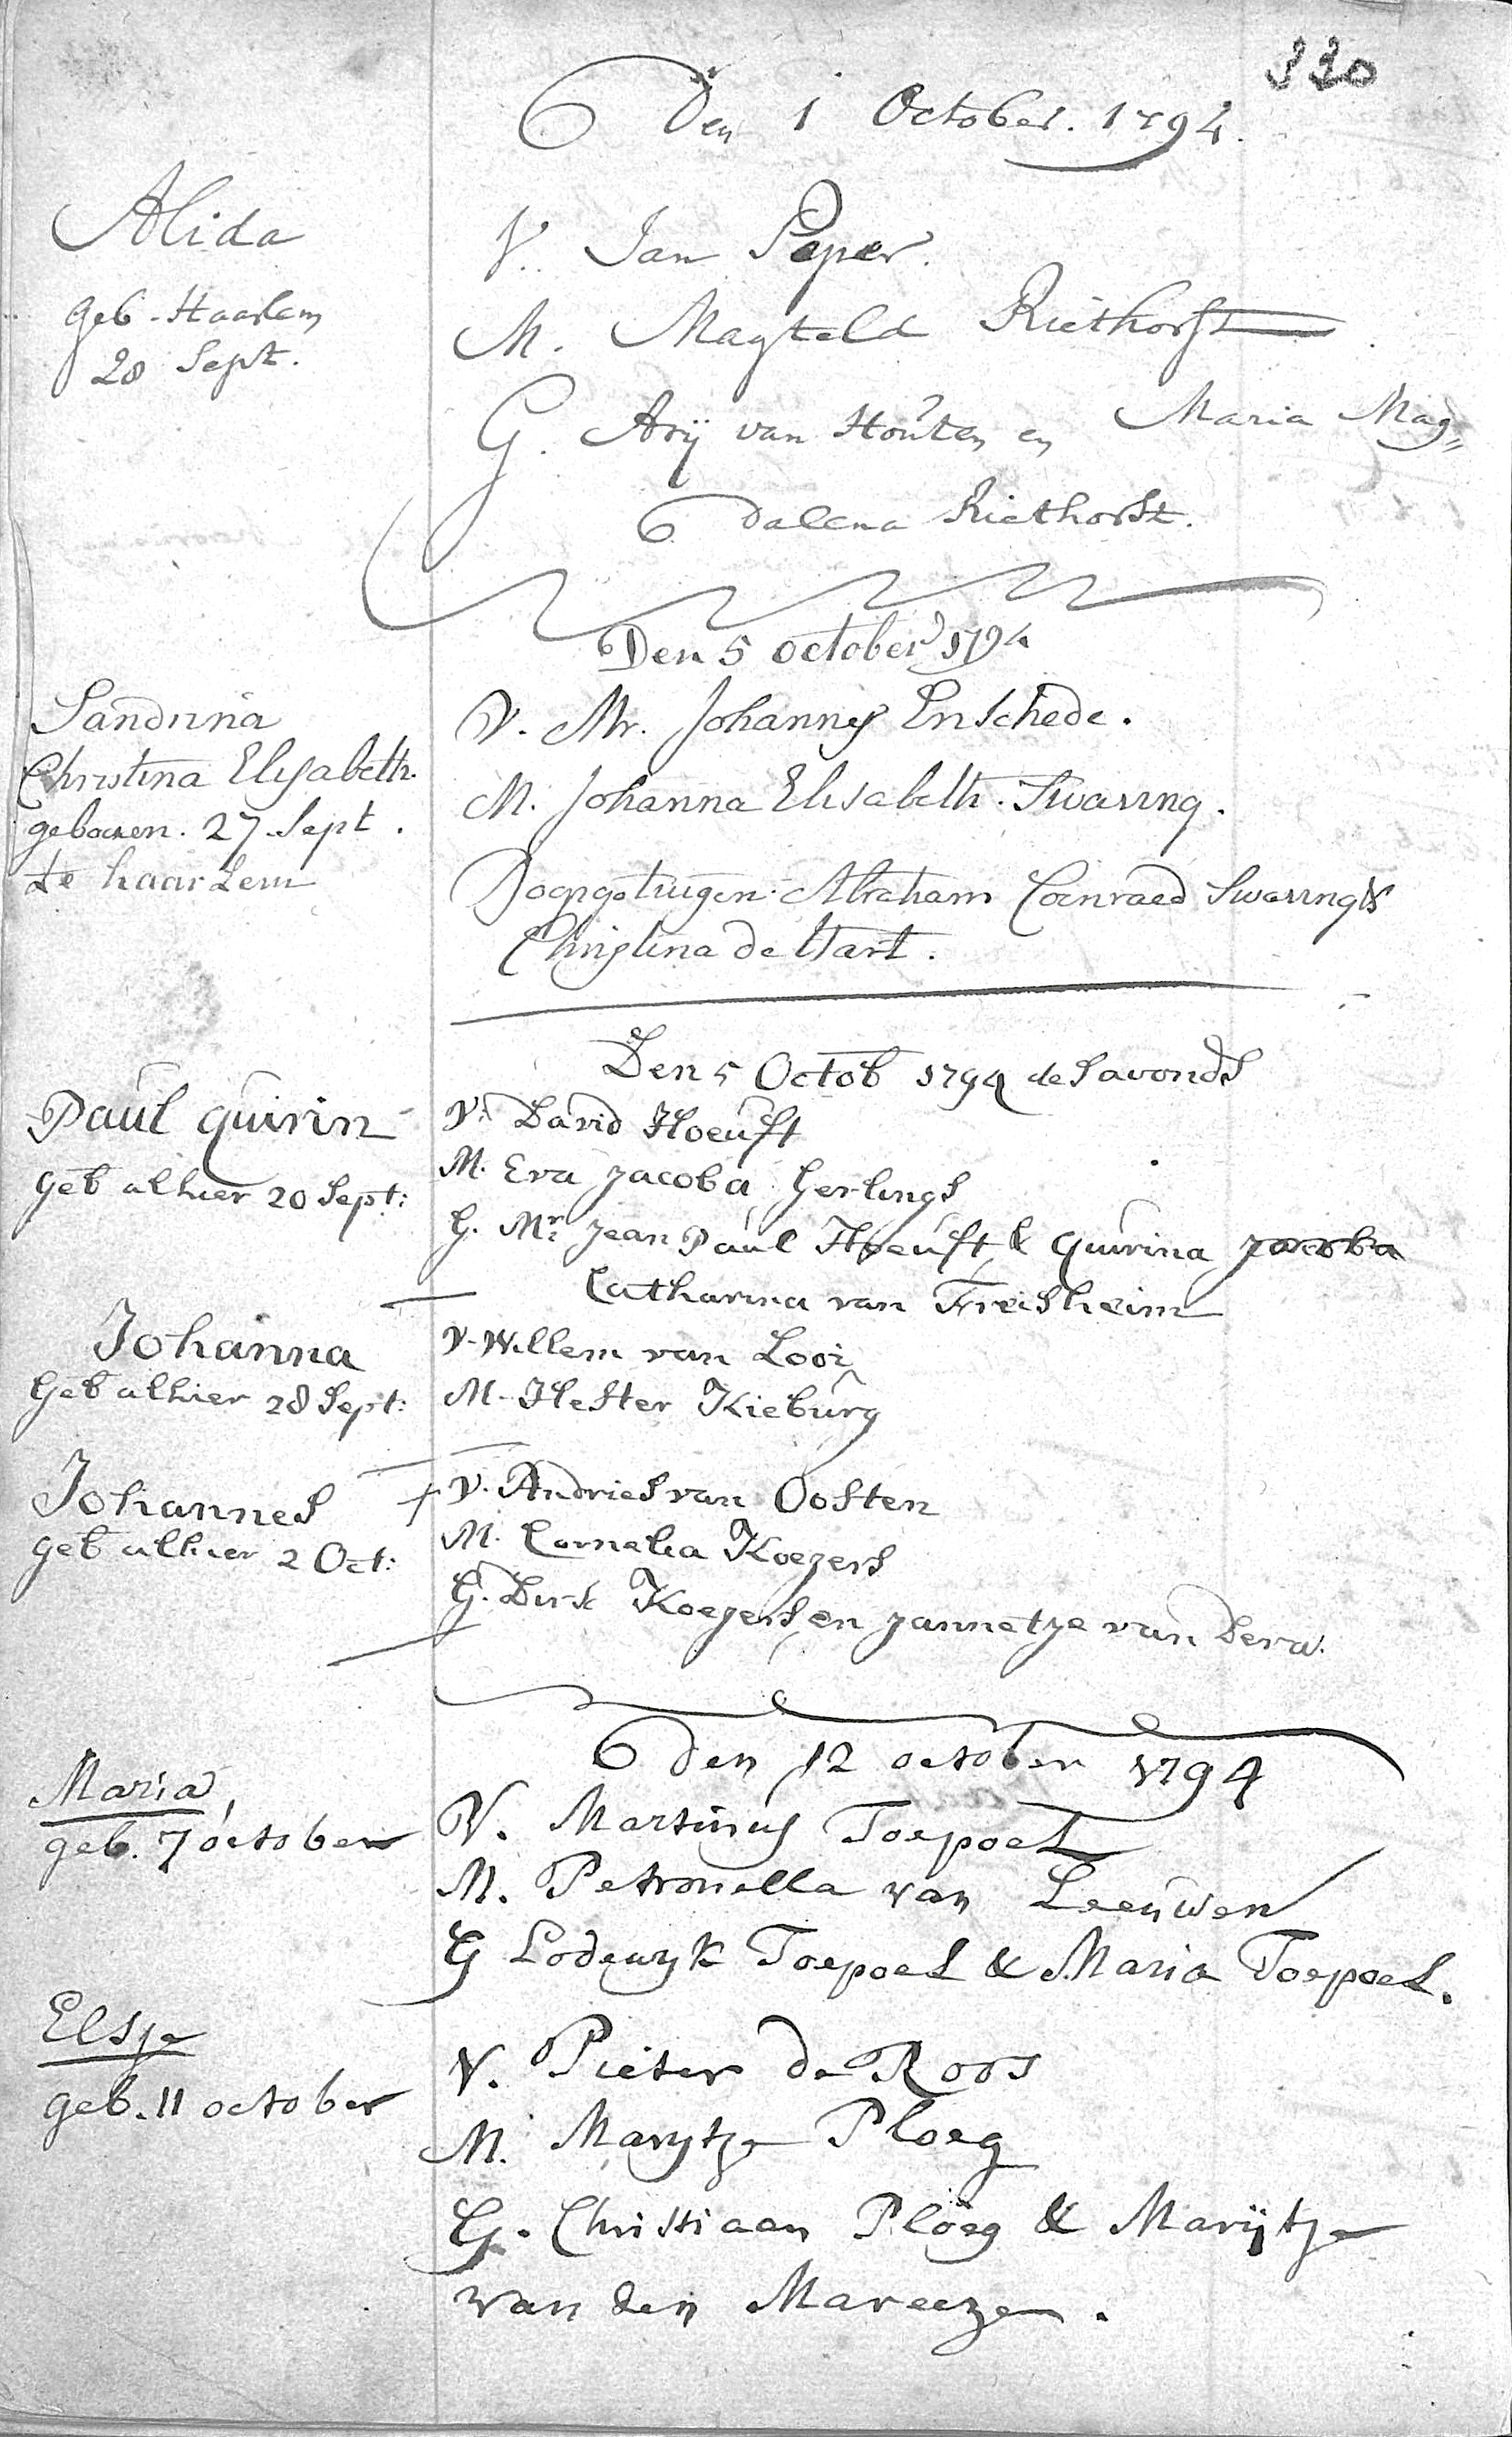 330
Den 1 October. 1794.
Alida
geb. Haarlem
28 Sept.
V. Jan Peper.
M. Magteld Riethorst
G. Arij van Houten en Maria Mag„
dalena Riethorst.
Den 5 october 1794
Sandrina
Christina Elisabeth.
geboren. 27 Sept.
te haarlem
V. Mr. Johannes Enschede.
M. Johanna Elisabeth. Swaring.
Doopgetuigen: Abraham Coenraed Swaring &
Christina de Hart.
Den 5 Octob 1794 des avonds
Paul Quirin
geb alhier 20 Sept:
V. David Hoeuft
M. Eva Jacoba Gerlings
G. Mr. Jean Paul Hoeuft & Quirina Jacoba
Catharina van Freisheim
Johanna
Geb alhier 28 Sept:
V. Willem van Looi
M. Hester Kieburg
Johannes
geb alhier 2 Oct:
V. Andries van Oosten
M. Cornelia Koezers
G. Dirk Koezers en Jannetje van Dera.
den 12 october 1794
Maria,
geb. 7 october
V. Martinus Toepoel
M. Petronella van Leeuwen
G Lodewyk Toepoel & Maria Toepoel.
Elsje
geb. 11 october
V. Pieter de Roos
M. Marytje Ploeg
G. Christiaan Ploeg & Marijtje
van den Mareeze.